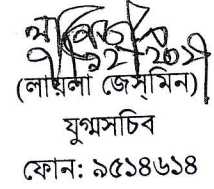 (লায়লা জেস্‌মিন)
যুগ্মসচিব
ফোন: ৯৫১৪৬১৪